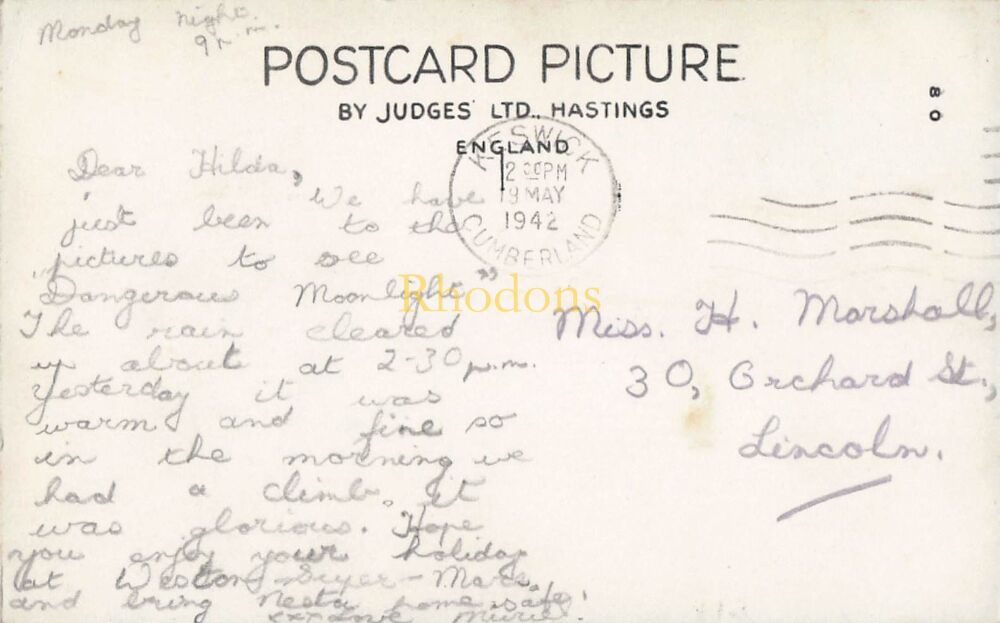 Monday night.
9 p.m.
POSTCARD PICTURE
BY JUDGES' LTD., HASTINGS
ENGLAND
80
KESWICK
2 00 PM
19 MAY
1942
CUMBERLAND
Dear Hilda,
We have
just been to the
pictures to see
"Dangerous Moonlight"
The rain cleared
up about at 2-30 p.m.
Yesterday it was
warm and fine so
in the morning we
had a climb. It
was glorious. Hope
you enjoy your holiday
at Weston-Super-Mare,
and bring Nesta home safe!
xxx love Muriel.
Rhodons
Miss. H. Marshall,
30, Orchard St.,
Lincoln.